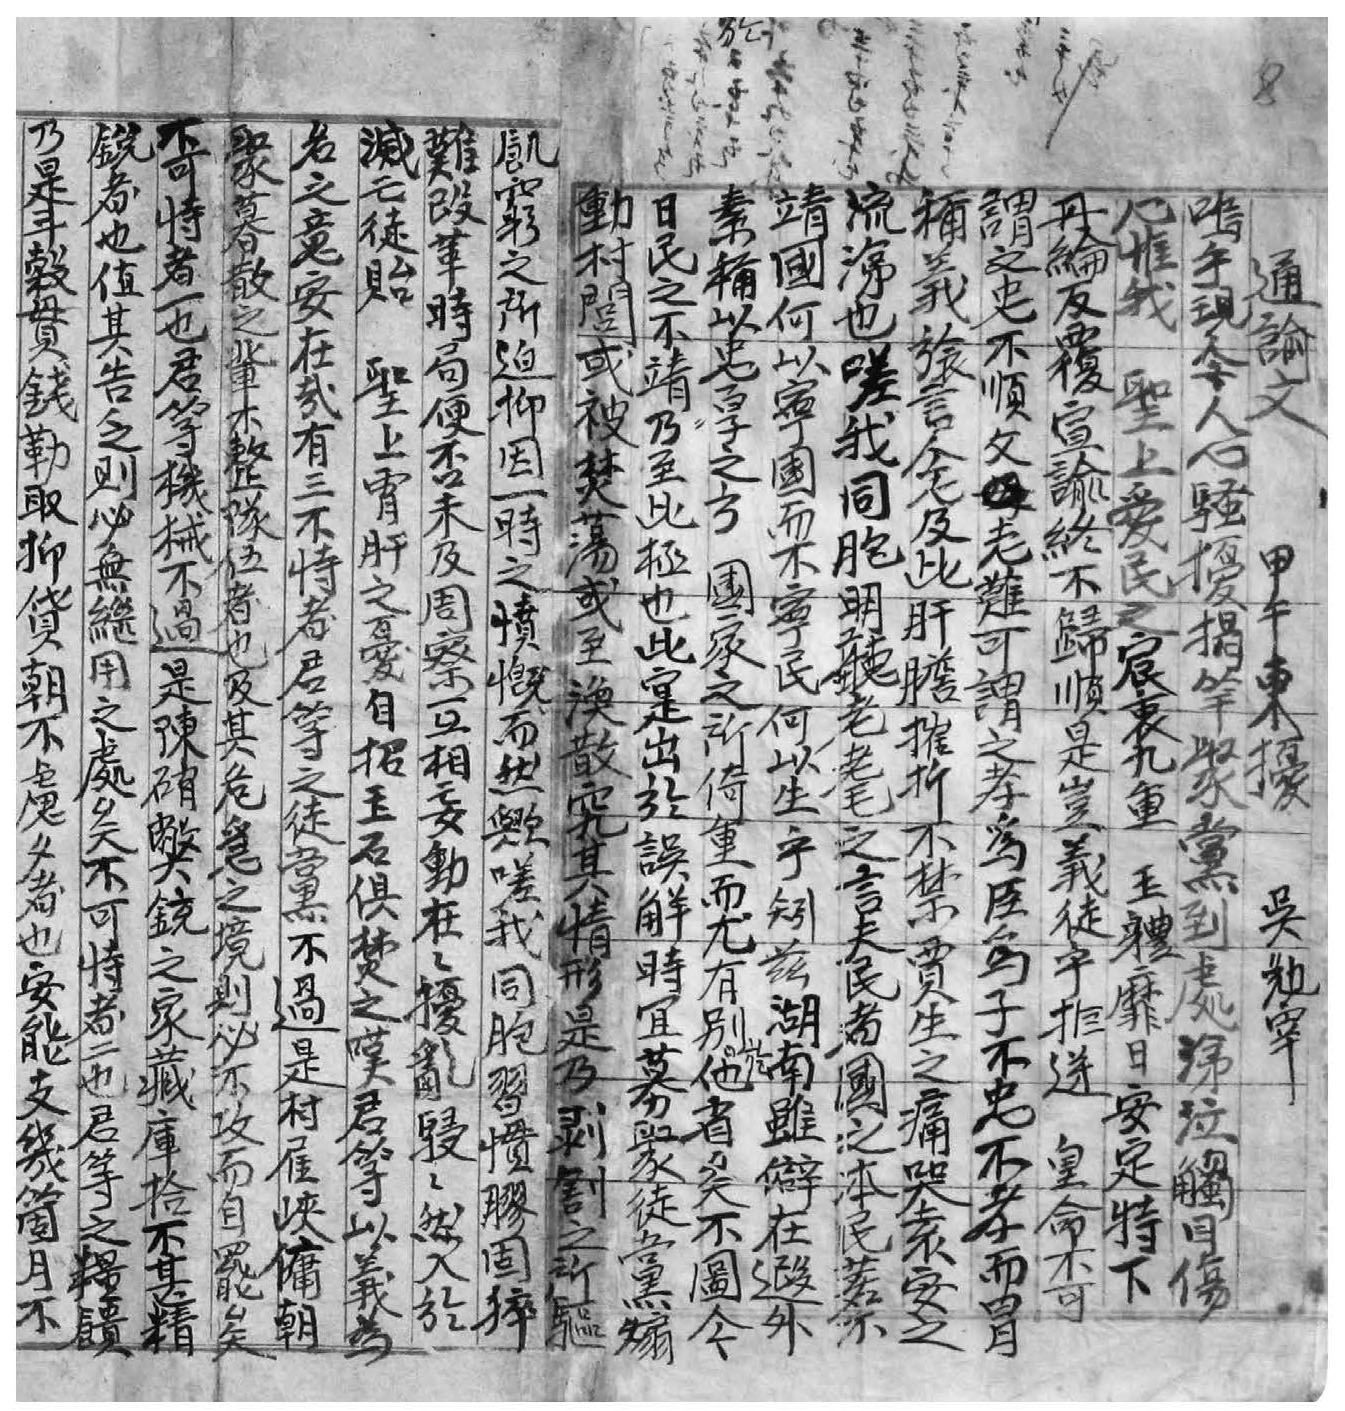 通諭文 甲午東擾 吳勉宰
嗚乎現今人心騷擾揭竿聚黨到處涕泣觸目傷
心惟我 聖上愛民之宸衷九重 玉體靡日安定特下
丹綸反覆宣諭終不歸順是豈義徒乎拒逆 皇命不可
謂之忠不順父母老難可謂之孝爲臣爲子不忠不孝而冒
稱義旅言念及此肝膽摧折不禁賈生之痛哭袁安之
流涕也嗟我同胞明聽老耄之言夫民者國之本民若不
靖國何以寧國而不寧民何以生乎矧玆湖南雖僻在遐外
素稱以忠孝之方 國家之所倚重而尤有別於他省矣不圖今
日民之不靖乃至此極也此寔出於誤解時宜募聚徒黨煽
動村閭或被焚蕩或至渙散究其情形是乃剥割之所驅
飢窮之所迫抑因一時之憤慨而然歟嗟我同胞習慣膠固猝
難改革時局便否未及周察互相妄動在〻擾亂駸〻然入於
滅亡徒貽 聖上宵肝之憂自招玉石俱焚之嘆君等以義爲
名之意安在哉有三不恃者君等之徒黨不過是村雇峽傭朝
聚暮散之輩不整隊伍者也及其危急之境則必不攻而自罷矣
不可恃者一也君等機械不過是陳硝弊銃之家藏庫拾不甚精
銳者也值其告乏則必無繼用之處矣不可恃者二也君等之糧饋
乃是斗穀貫錢勒取抑貸朝不慮夕者也安能支幾箇月不